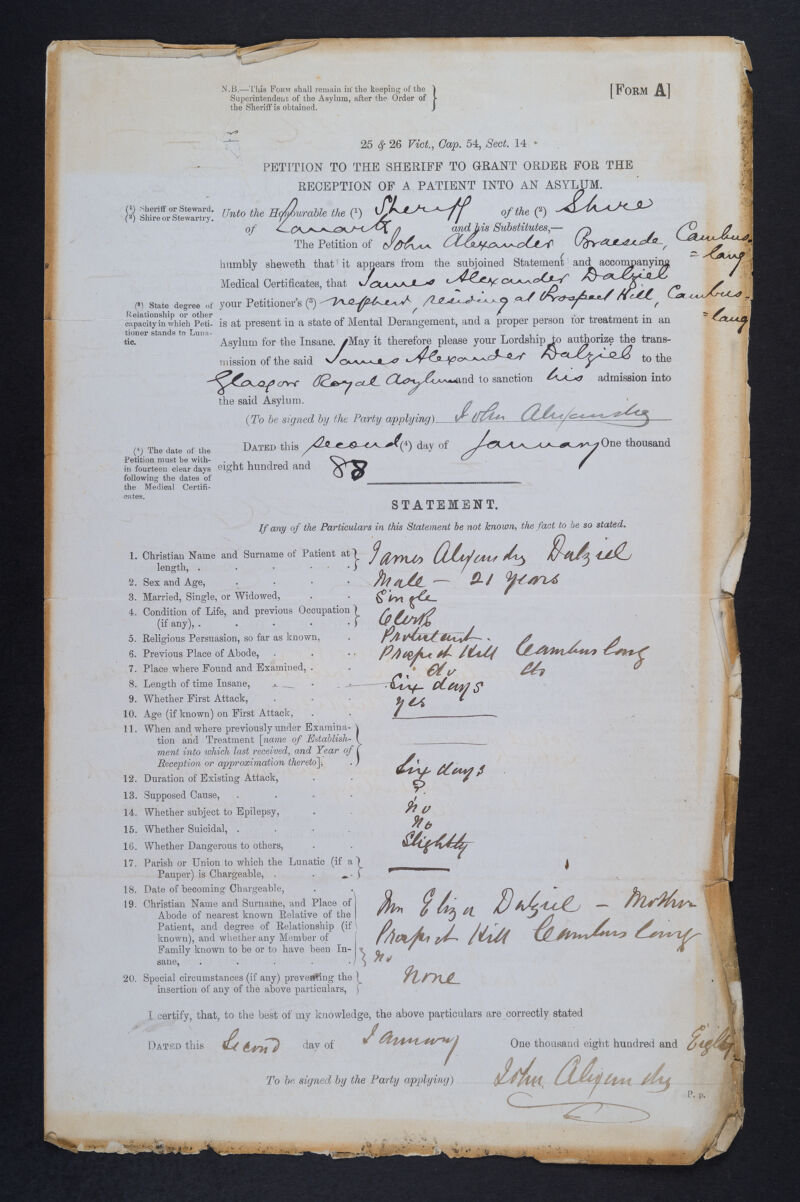 N.B.—This Form shall remain in the keeping of the
Superintendent of the Asylum, after the Order of
the Sheriff is obtained.
[Form A]
25 & 26 Vict., Cap. 54, Sect. 14
PETITION TO THE SHERIFF TO GRANT ORDER FOR THE
RECEPTION OF A PATIENT INTO AN ASYLUM.
(1) Sheriff or Steward.
(2) Shire or Stewartry.
Unto the Honourable the (1) Sheriff of the (2) Shire
of Lanark and his Substitutes,—
The Petition of John Alexander, Braeside, Cambus-
=lang
humbly sheweth that it appears from the subjoined Statement and accompanying
Medical Certificates, that James Alexander Dalziel
(3) State degree of
Relationship or other
capacity in which Peti-
tioner stands to Luna-
tic.
your Petitioner's (3) nephew, residing at Prospect Hill, Cambus-
=lang
is at present in a state of Mental Derangement, and a proper person for treatment in an
Asylum for the Insane. May it therefore please your Lordship to authorize the trans-
mission of the said James Alexander Dalziel to the
Glasgow Royal Asylum and to sanction his admission into
the said Asylum.
(To be signed by the Party applying) John Alexander
(4) The date of the
Petition must be with-
in fourteen clear days
following the dates of
the Medical Certifi-
cates.
Dated this second (4) day of January One thousand
eight hundred and 88
STATEMENT.
If any of the Particulars in this Statement be not known, the fact to be so stated.
1. Christian Name and Surname of Patient at
length, . James Alexander Dalziel
2. Sex and Age, Male — 21 years
3. Married, Single, or Widowed, Single
4. Condition of Life, and previous Occupation
(if any), . Clerk
5. Religious Persuasion, so far as known, Protestant.
6. Previous Place of Abode, Prospect Hill Cambuslang
7. Place where Found and Examined, do do
8. Length of time Insane, Six days
9. Whether First Attack, yes
10. Age (if known) on First Attack,
11. When and where previously under Examina-
tion and Treatment [name of Establish-
ment into which last received, and Year of
Reception or approximation thereto],
12. Duration of Existing Attack, Six days
13. Supposed Cause, ?
14. Whether subject to Epilepsy, no
15. Whether Suicidal, . No
16. Whether Dangerous to others, Slightly
17. Parish or Union to which the Lunatic (if a
Pauper) is Chargeable, .
18. Date of becoming Chargeable,
19. Christian Name and Surname, and Place of
Abode of nearest known Relative of the
Patient, and degree of Relationship (if
known), and whether any Member of
Family known to be or to have been In-
sane, Mrs Eliza Dalziel — Mother
Prospect Hill Cambuslang
no
20. Special circumstances (if any) preventing the
insertion of any of the above particulars, None
I certify, that, to the best of my knowledge, the above particulars are correctly stated
Dated this Second day of January One thousand eight hundred and Eighty
To be signed by the Party applying) John Alexander
P. p.